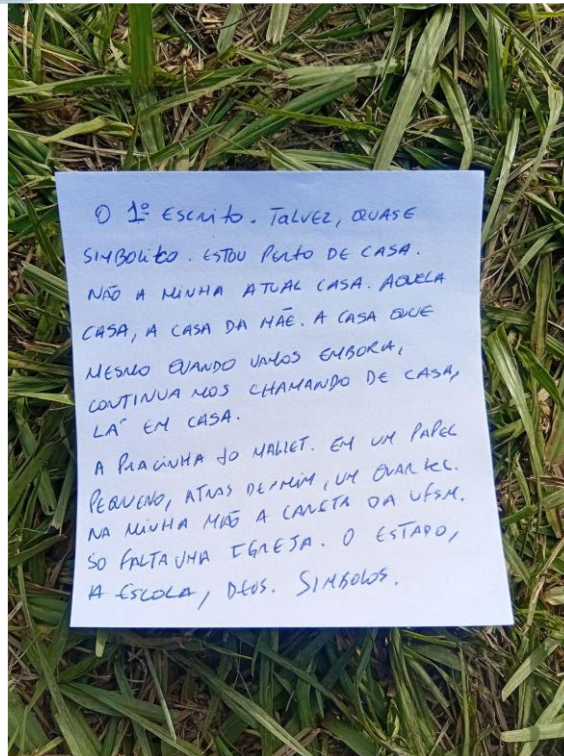 O 1º ESCRITO. TALVEZ, QUASE
SIMBOLICO. ESTOU PERTO DE CASA.
NÃO A MINHA ATUAL CASA. AQUELA
CASA, A CASA DA MÃE. A CASA QUE
MESMO QUANDO VAMOS EMBORA,
CONTINUAMOS CHAMANDO DE CASA,
LÁ EM CASA.
A PRACINHA DO MALLET. EM UM PAPEL
PEQUENO, ATRAS DE MIM, UM QUARTEL.
NA MINHA MÃO A CANETA DA UFSM.
SO FALTA UMA IGREJA. O ESTADO,
A ESCOLA, DEUS. SIMBOLOS.